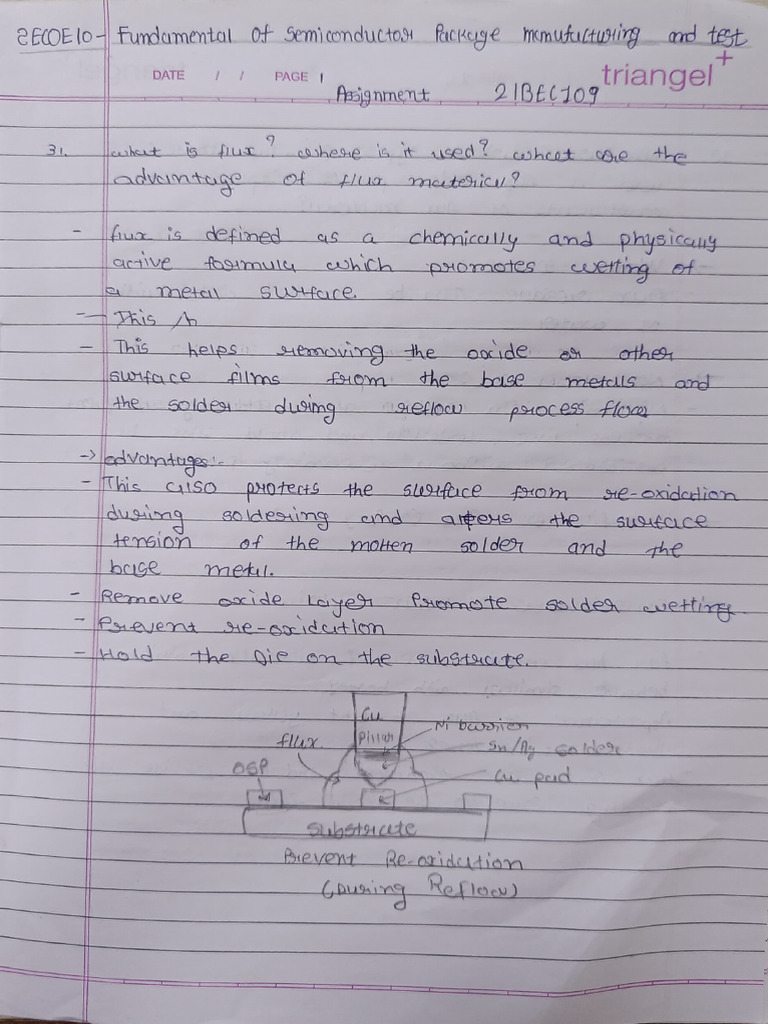 2ECOE10 - Fundamental Of Semiconductor Package manufacturing and test
DATE / / PAGE 1
triangel+
Assignment 21BEC109
31. what is flux? where is it used? what are the
advantage of flux material?
- flux is defined as a chemically and physically
active formula which promotes wetting of
a metal surface.
- This
- This helps removing the oxide or other
surface films from the base metals and
the solder during reflow process flow
-> advantages:-
- This also protects the surface from re-oxidation
during soldering and alters the surface
tension of the molten solder and the
base metal.
- Remove oxide layer Promote solder wetting.
- Prevent re-oxidation
- Hold the Die on the substrate.
Cu
Pillar
Ni barrier
flux
Sn/Ag solder
OSP
Cu pad
Substrate
Prevent Re-oxidation
(During Reflow)